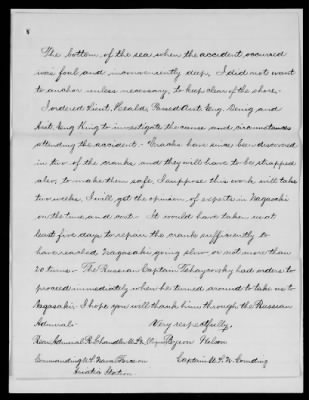 8
The bottom of the sea when the accident occurred
was foul and inconveniently deep, I did not want
to anchor unless necessary, to keep clear of the shore.
I ordered Lieut. Heald, Passed Asst. Eng. Denig and
Asst. Eng King to investigate the cause and circumstances
attending the accident. Cracks have since been discovered
in two of the cranks and they will have to be strapped
also, to make them safe, I suppose this work will take
two weeks, I will get the opinion of experts in Nagasaki
on the time and cost. It would have taken us at
least five days to repair the crank sufficiently to
have reached Nagasaki going slow or not more than
20 turns. The Russian Captain had orders to
proceed immediately when he turned around to take us to
Nagasaki. I hope you will thank him through the Russian
Admiral. Very respectfully,
Rear Admiral R. Chandler U.S.N. Byron Wilson
Commanding U.S. Naval Force on Captain U.S.N. Comding
Asiatic Station.